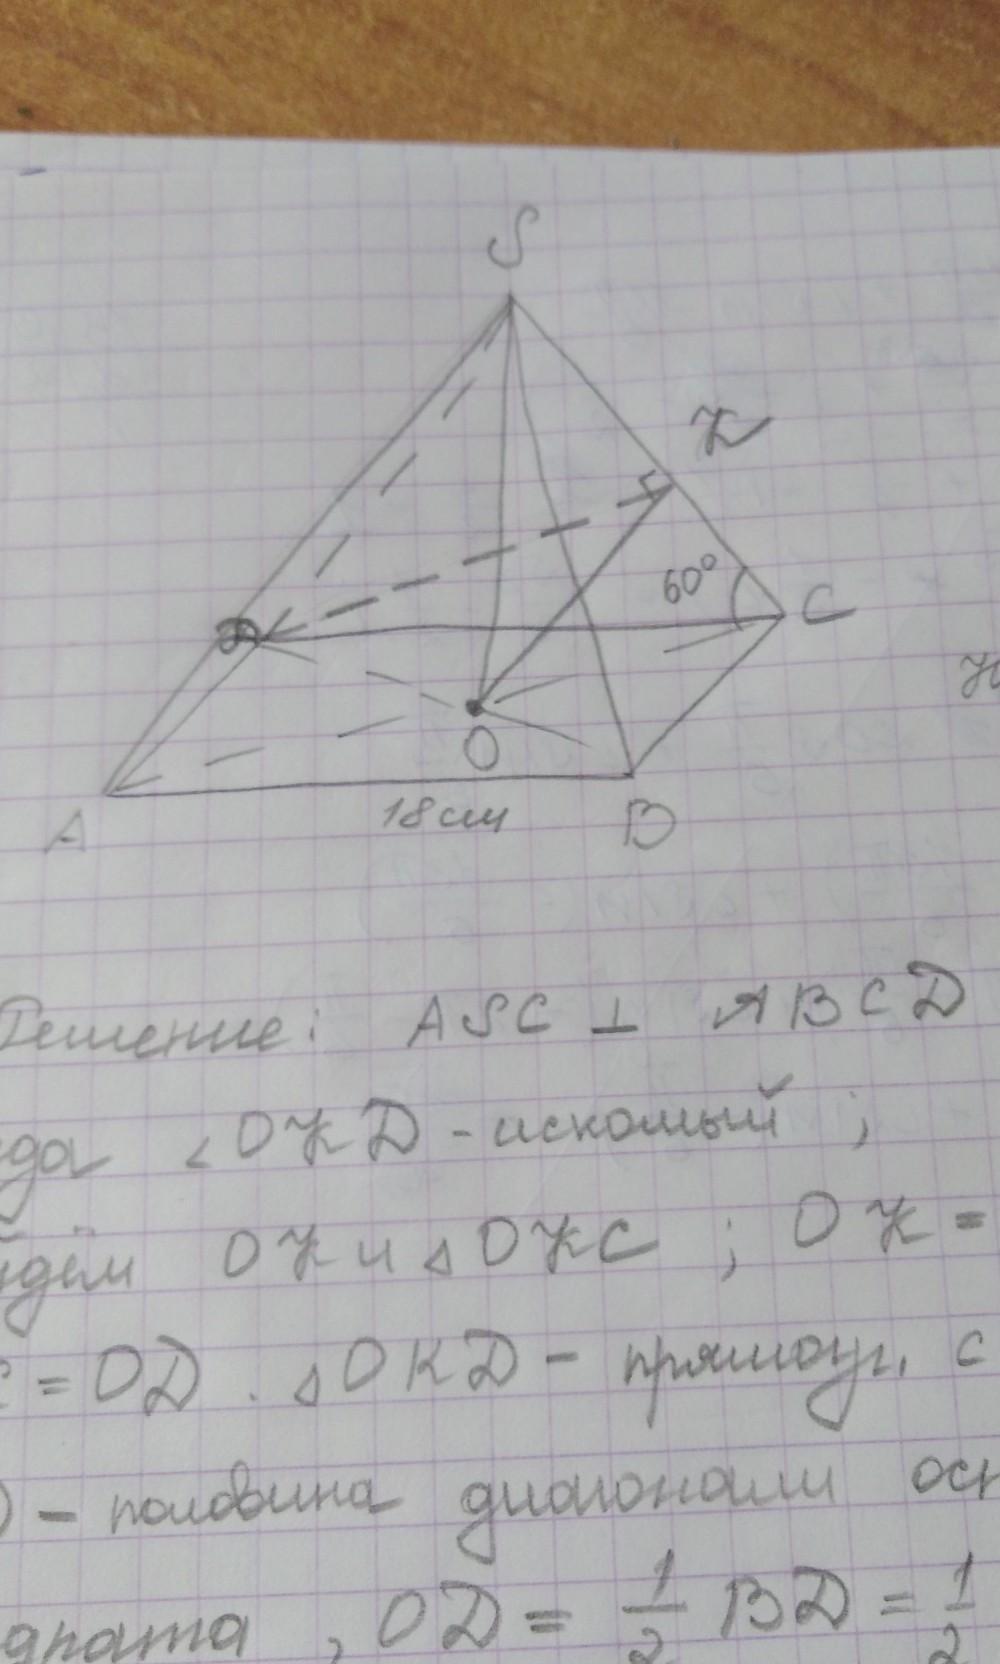 S
K
60°
C
O
18 см
A
B
Решение: ASC ⊥ ABCD
∠OKD - искомый ;
OK и △OKC ; OK =
= OD . △OKD - прямоуг. с
- половина диагонали
, OD = 1/2 BD = 1/2